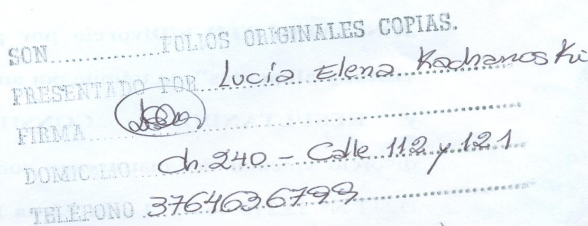 SON.............FOLIOS ORIGINALES COPIAS.
PRESENTADO POR Lucía Elena Kachanoski
FIRMA
DOMICILIO Ch. 240 - Calle 112 y 121
TELÉFONO 3764636799